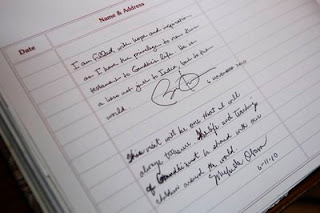 Name & Address
Date
I am filled with hope and inspiration
as I have the privilege to view this
testament to Gandhi's life. He is
a hero not just to India, but to the
world
6 November 2010
This visit will be one that I will
always treasure. life and teaching
of Gandhi must be shared with our
children around the world.
Michelle Obama
6-11-10